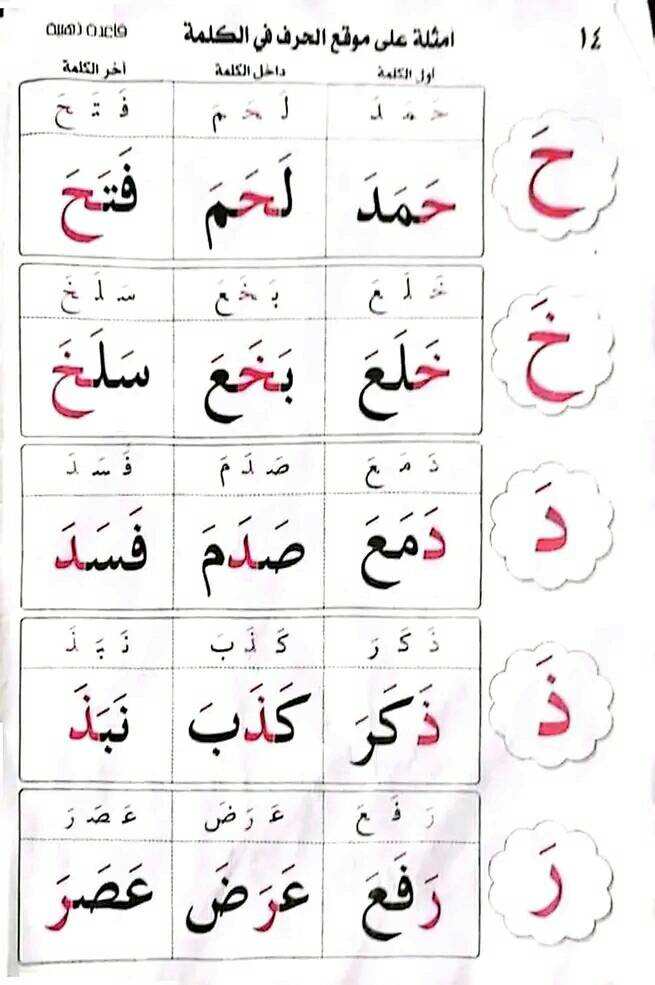 ١٤ امثلة على موقع الحرف في الكلمة قاعدة ذهبية
أول الكلمة داخل الكلمة آخر الكلمة
حَ مَ دَ لَ حَ مَ فَ تَ حَ
حَ حَمَدَ لَحَمَ فَتَحَ
خَ لَ عَ بَ خَ عَ سَ لَ خَ
خَ خَلَعَ بَخَعَ سَلَخَ
دَ مَ عَ صَ دَ مَ فَ سَ دَ
دَ دَمَعَ صَدَمَ فَسَدَ
ذَ كَ رَ كَ ذَ بَ نَ بَ ذَ
ذَ ذَكَرَ كَذَبَ نَبَذَ
رَ فَ عَ عَ رَ ضَ عَ صَ رَ
رَ رَفَعَ عَرَضَ عَصَرَ